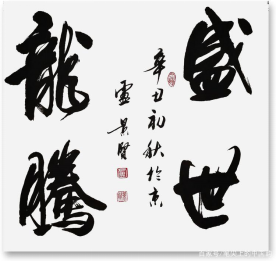 盛世
龍騰
辛丑初秋於京
盧景賢